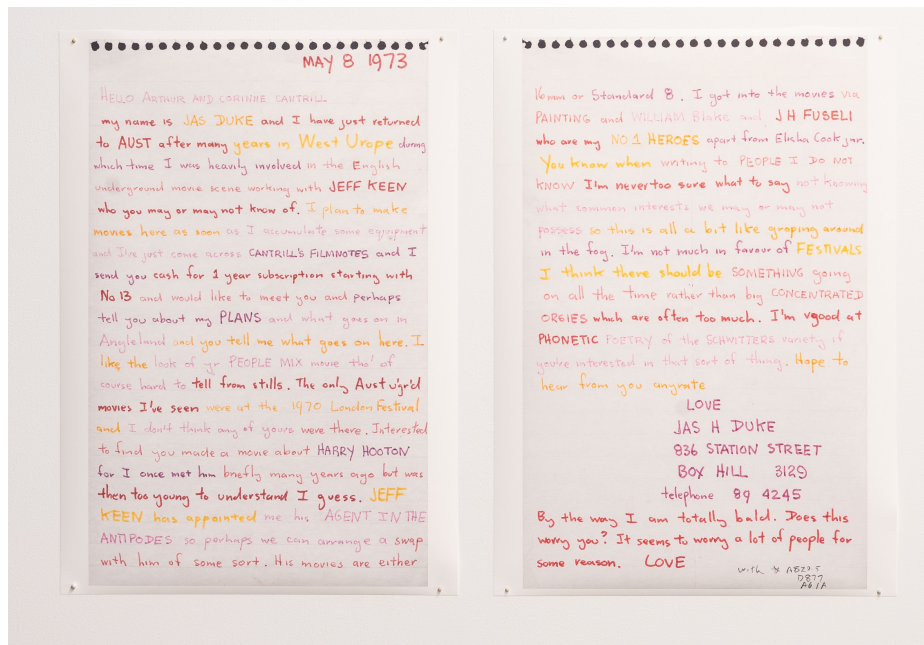 MAY 8 1973
HELLO ARTHUR AND CORINNE CANTRILL
my name is JAS DUKE and I have just returned
to AUST after many years in West Urope during
which time I was heavily involved in the English
underground movie scene working with JEFF KEEN
who you may or may not know of. I plan to make
movies here as soon as I accumulate some equipment
and I've just come across CANTRILL'S FILMNOTES and I
send you cash for 1 year subscription starting with
No 13 and would like to meet you and perhaps
tell you about my PLANS and what goes on in
Anglelond and you tell me what goes on here. I
like the look of yr PEOPLE MIX movie tho' of
course hard to tell from stills. The only Aust u'gr'd
movies I've seen were at the 1970 London Festival
and I don't think any of yours were there. Interested
to find you made a movie about HARRY HOOTON
for I once met him briefly many years ago but was
then too young to understand I guess. JEFF
KEEN has appointed me his AGENT IN THE
ANTIPODES so perhaps we can arrange a swap
with him of some sort. His movies are either
16mm or Standard 8. I got into the movies via
PAINTING and WILLIAM Blake and J H FUSELI
who are my NO 1 HEROES apart from Elisha Cook jnr.
You know when writing to PEOPLE I DO NOT
KNOW I'm never too sure what to say not knowing
what common interests we may or may not
possess so this is all a bit like groping around
in the fog. I'm not much in favour of FESTIVALS
I think there should be SOMETHING going
on all the time rather than big CONCENTRATED
ORGIES which are often too much. I'm vgood at
PHONETIC POETRY of the SCHWITTERS variety if
you're interested in that sort of thing. Hope to
hear from you anyrate
LOVE
JAS H DUKE
836 STATION STREET
BOX HILL 3129
telephone 89 4245
By the way I am totally bald. Does this
worry you? It seems to worry a lot of people for
some reason. LOVE
with
D877
A61A